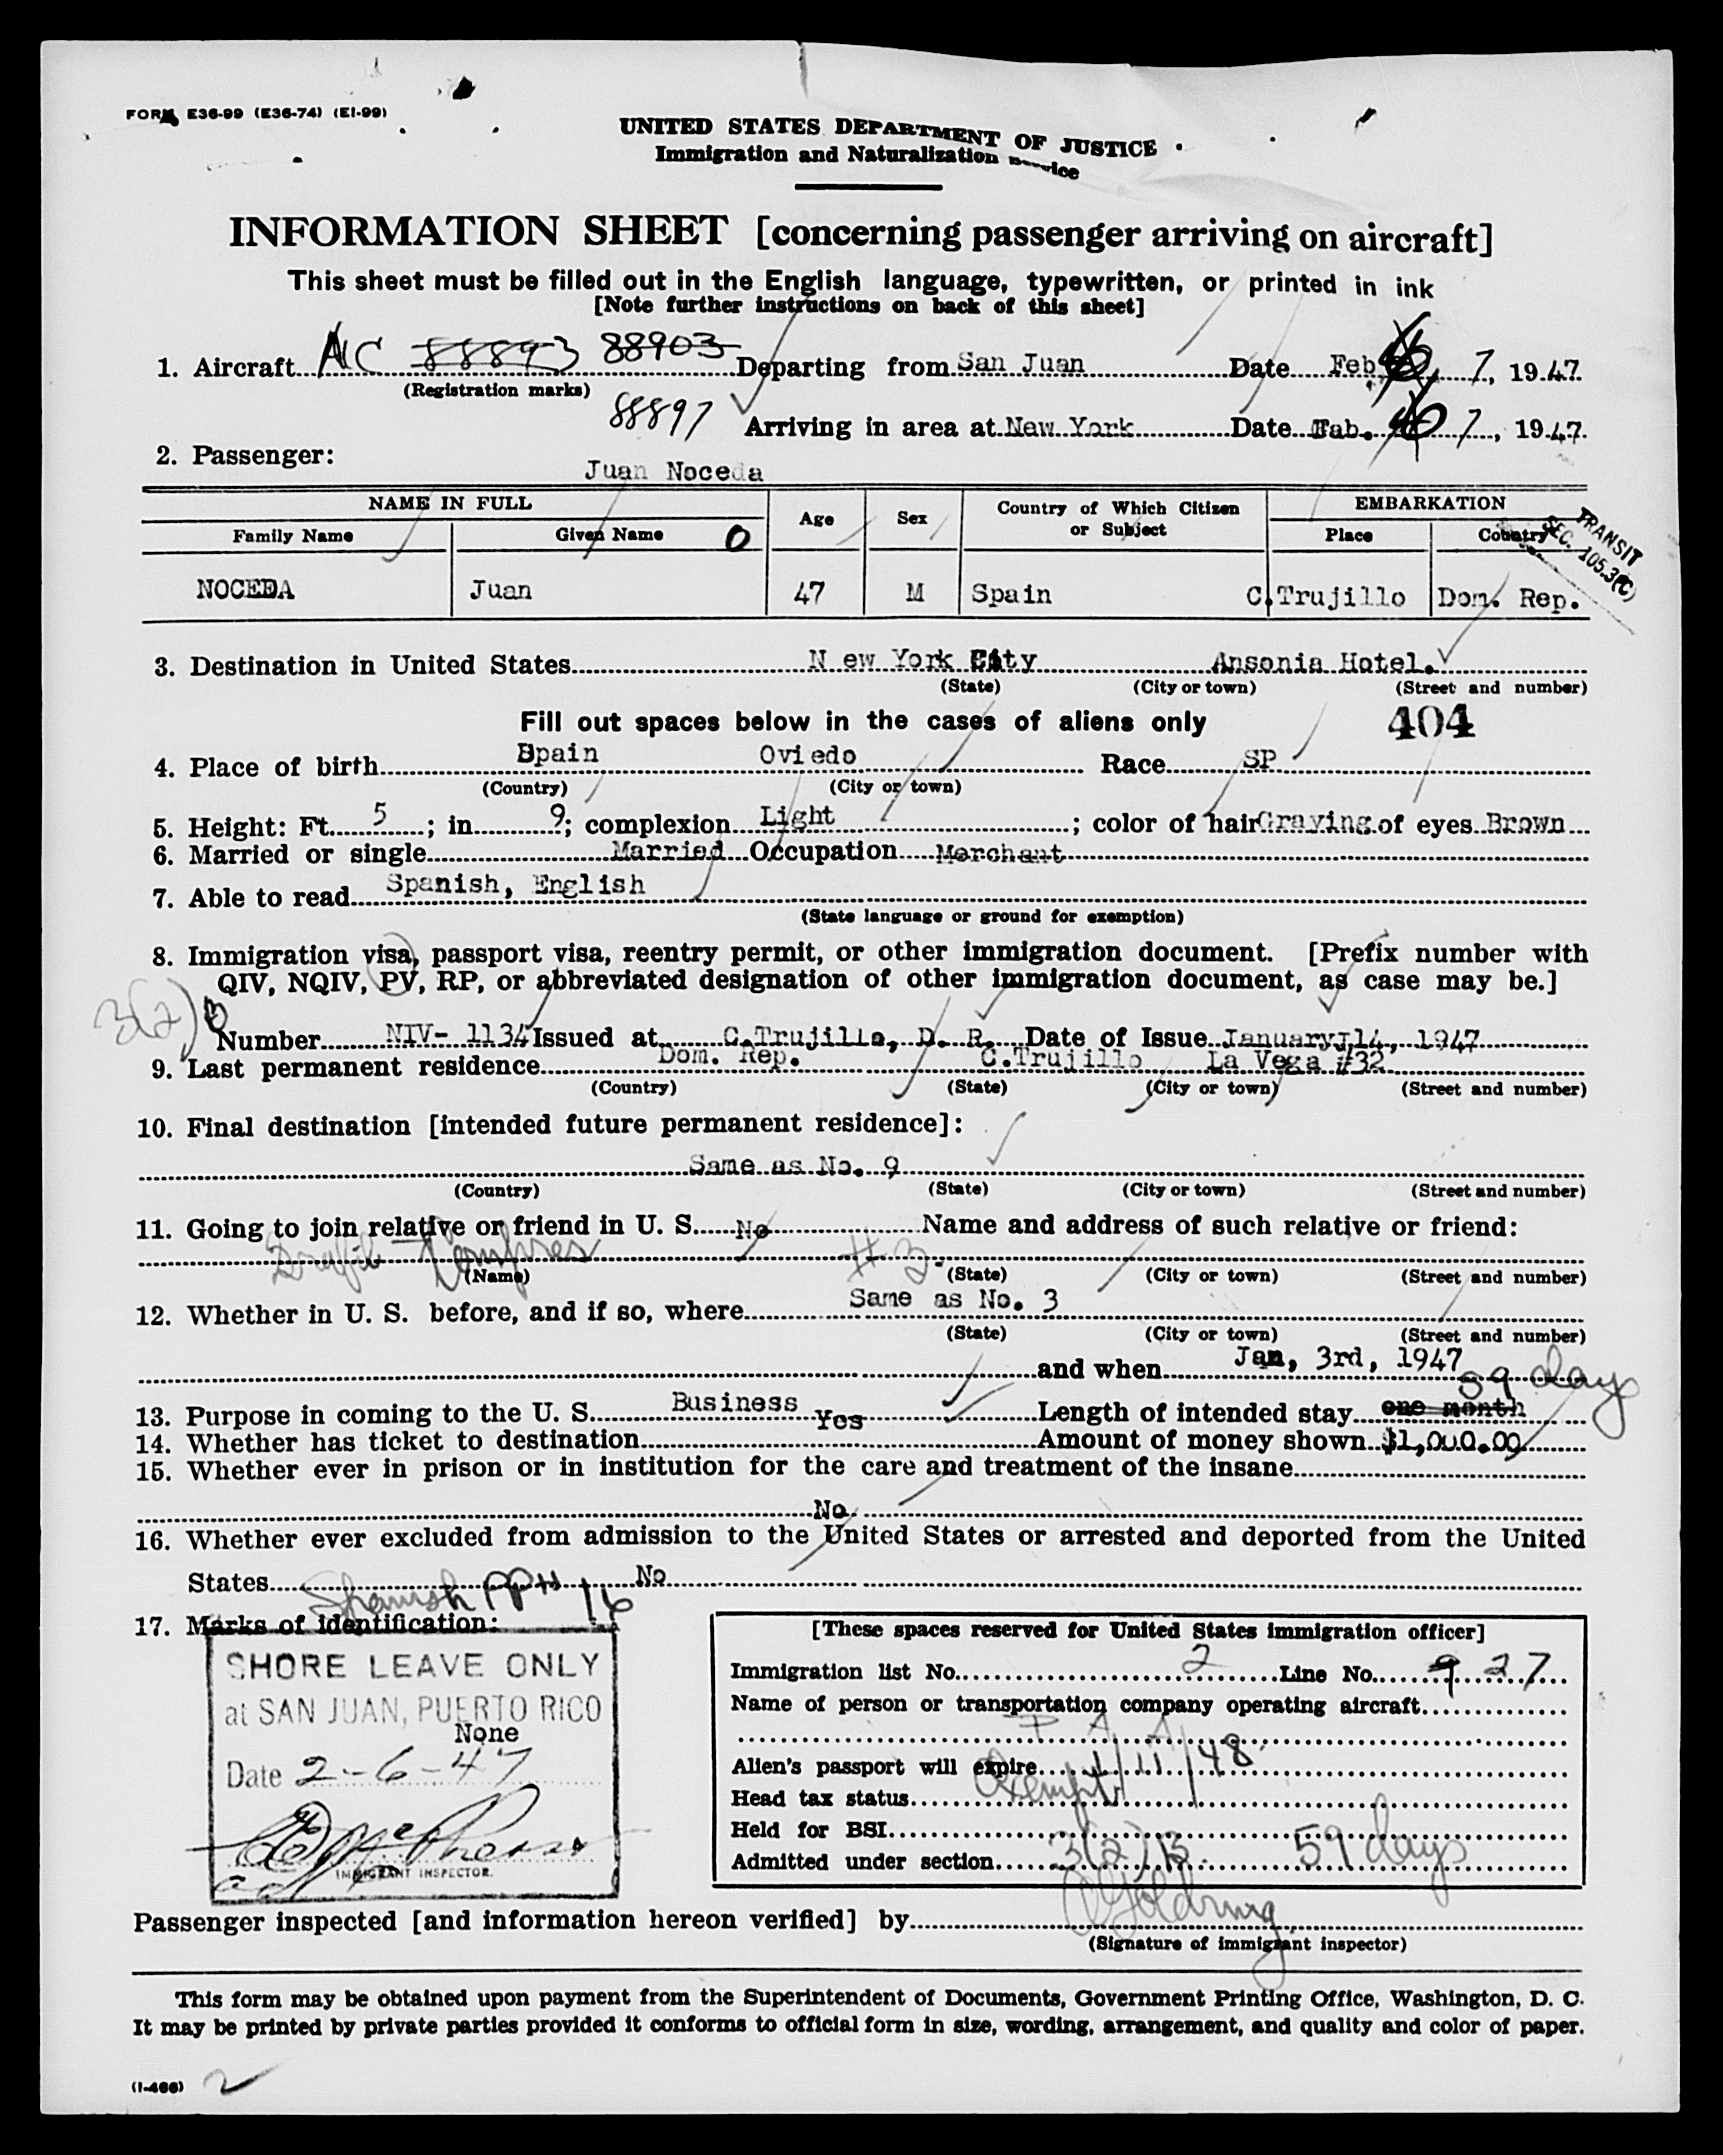 FORM E36-99 (E36-74) (EI-99)
UNITED STATES DEPARTMENT OF JUSTICE
Immigration and Naturalization Service
INFORMATION SHEET [concerning passenger arriving on aircraft]
This sheet must be filled out in the English language, typewritten, or printed in ink
[Note further instructions on back of this sheet]
1. Aircraft NC 88893 88903 Departing from San Juan Date Feb. 7, 1947
(Registration marks)
88897 Arriving in area at New York Date Feb. 7, 1947
2. Passenger:
Juan Noceda
NAME IN FULL Age Sex Country of Which Citizen or Subject EMBARKATION
Family Name Given Name O Place Country
TRANSIT
SEC. 105.3(C)
NOCEDA Juan 47 M Spain C.Trujillo Dom. Rep.
3. Destination in United States New York City Ansonia Hotel.
(State) (City or town) (Street and number)
Fill out spaces below in the cases of aliens only 404
4. Place of birth Spain Oviedo Race SP
(Country) (City or town)
5. Height: Ft. 5; in. 9; complexion Light; color of hair Graying of eyes Brown
6. Married or single Married Occupation Merchant
7. Able to read Spanish, English
(State language or ground for exemption)
8. Immigration visa, passport visa, reentry permit, or other immigration document. [Prefix number with
QIV, NQIV, PV, RP, or abbreviated designation of other immigration document, as case may be.]
3(2)B
Number NIV- 1134 Issued at C.Trujillo, D. R. Date of Issue January 14, 1947
9. Last permanent residence Dom. Rep. C.Trujillo La Vega #32
(Country) (State) (City or town) (Street and number)
10. Final destination [intended future permanent residence]:
Same as No. 9
(Country) (State) (City or town) (Street and number)
11. Going to join relative or friend in U. S. No Name and address of such relative or friend:
# 3.
(Name) (State) (City or town) (Street and number)
12. Whether in U. S. before, and if so, where Same as No. 3
(State) (City or town) (Street and number)
and when Jan, 3rd, 1947
59 days
13. Purpose in coming to the U. S. Business Length of intended stay one month
14. Whether has ticket to destination Yes Amount of money shown $1,000.00
15. Whether ever in prison or in institution for the care and treatment of the insane
No
16. Whether ever excluded from admission to the United States or arrested and deported from the United
States No
Spanish PP# 16
17. Marks of identification:
SHORE LEAVE ONLY
at SAN JUAN, PUERTO RICO
None
Date 2-6-47
IMMIGRANT INSPECTOR.
[These spaces reserved for United States immigration officer]
Immigration list No. 2 Line No. 9 27
Name of person or transportation company operating aircraft
P A A
Alien's passport will expire 1/11/48.
Head tax status Exempt
Held for BSI
Admitted under section 3(2)B. 59 days
Passenger inspected [and information hereon verified] by Goldring
(Signature of immigrant inspector)
This form may be obtained upon payment from the Superintendent of Documents, Government Printing Office, Washington, D. C.
It may be printed by private parties provided it conforms to official form in size, wording, arrangement, and quality and color of paper.
(I-466) 2